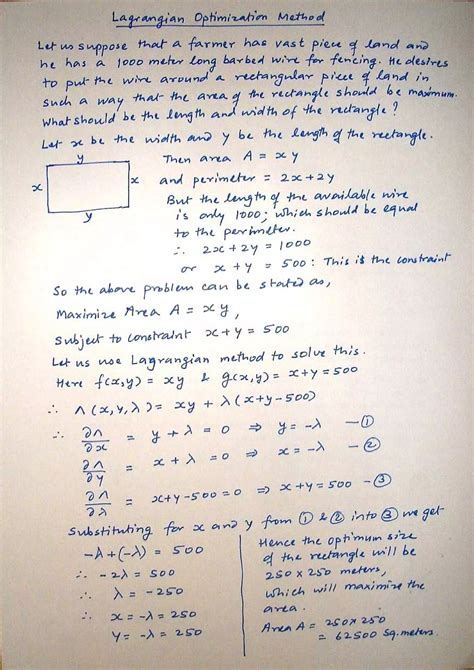 Lagrangian Optimization Method
Let us suppose that a farmer has vast piece of land and
he has a 1000 meter long barbed wire for fencing. He desires
to put the wire around a rectangular piece of land in
such a way that the area of the rectangle should be maximum.
What should be the length and width of the rectangle?
Let x be the width and y be the length of the rectangle.
y
x
x
y
Then area A = xy
and perimeter = 2x+2y
But the length of the available wire
is only 1000; which should be equal
to the perimeter.
∴ 2x+2y = 1000
or x+y = 500: This is the constraint
So the above problem can be stated as,
Maximize Area A = xy,
Subject to constraint x+y = 500
Let us use Lagrangian method to solve this.
Here f(x,y) = xy & g(x,y) = x+y = 500
∴ Λ(x,y,λ) = xy + λ(x+y-500)
∴ ∂Λ/∂x = y+λ = 0 ⇒ y = -λ —①
∂Λ/∂y = x+λ = 0 ⇒ x = -λ —②
∂Λ/∂λ = x+y-500 = 0 ⇒ x+y = 500 —③
Substituting for x and y from ① & ② into ③ we get
-λ+(-λ) = 500
∴ -2λ = 500
∴ λ = -250
∴ x = -λ = 250
Y = -λ = 250
Hence the optimum size
of the rectangle will be
250 x 250 meters,
which will maximize the
area.
Area A = 250x250
= 62500 sq.meters.